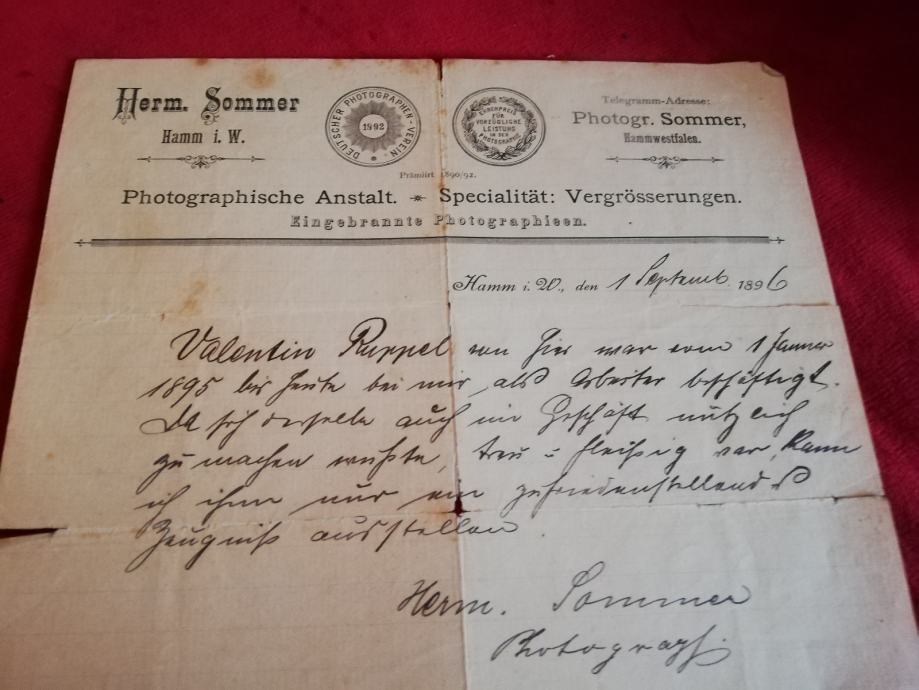 Herm. Sommer
Hamm i. W.
DEUTSCHER PHOTOGRAPHEN-VEREIN.
1892
EHRENPREIS
FÜR
VORZÜGLICHE
LEISTUNG
IN DER
PHOTOGRAPHIE
Telegramm-Adresse:
Photogr. Sommer,
Hammwestfalen.
Prämiirt 1890/92.
Photographische Anstalt. Specialität: Vergrösserungen.
Eingebrannte Photographieen.
Hamm i. W., den 1 Septemb. 1896
Valentin Ruppel von hier war vom 1 Januar
1895 bis heute bei mir als Arbeiter beschäftigt.
Da sich derselbe auch im Geschäft nützlich
zu machen wußte, treu u fleißig war, kann
ich ihm nur ein zufriedenstellendes
Zeugniß ausstellen
Herm. Sommer
Photograph.